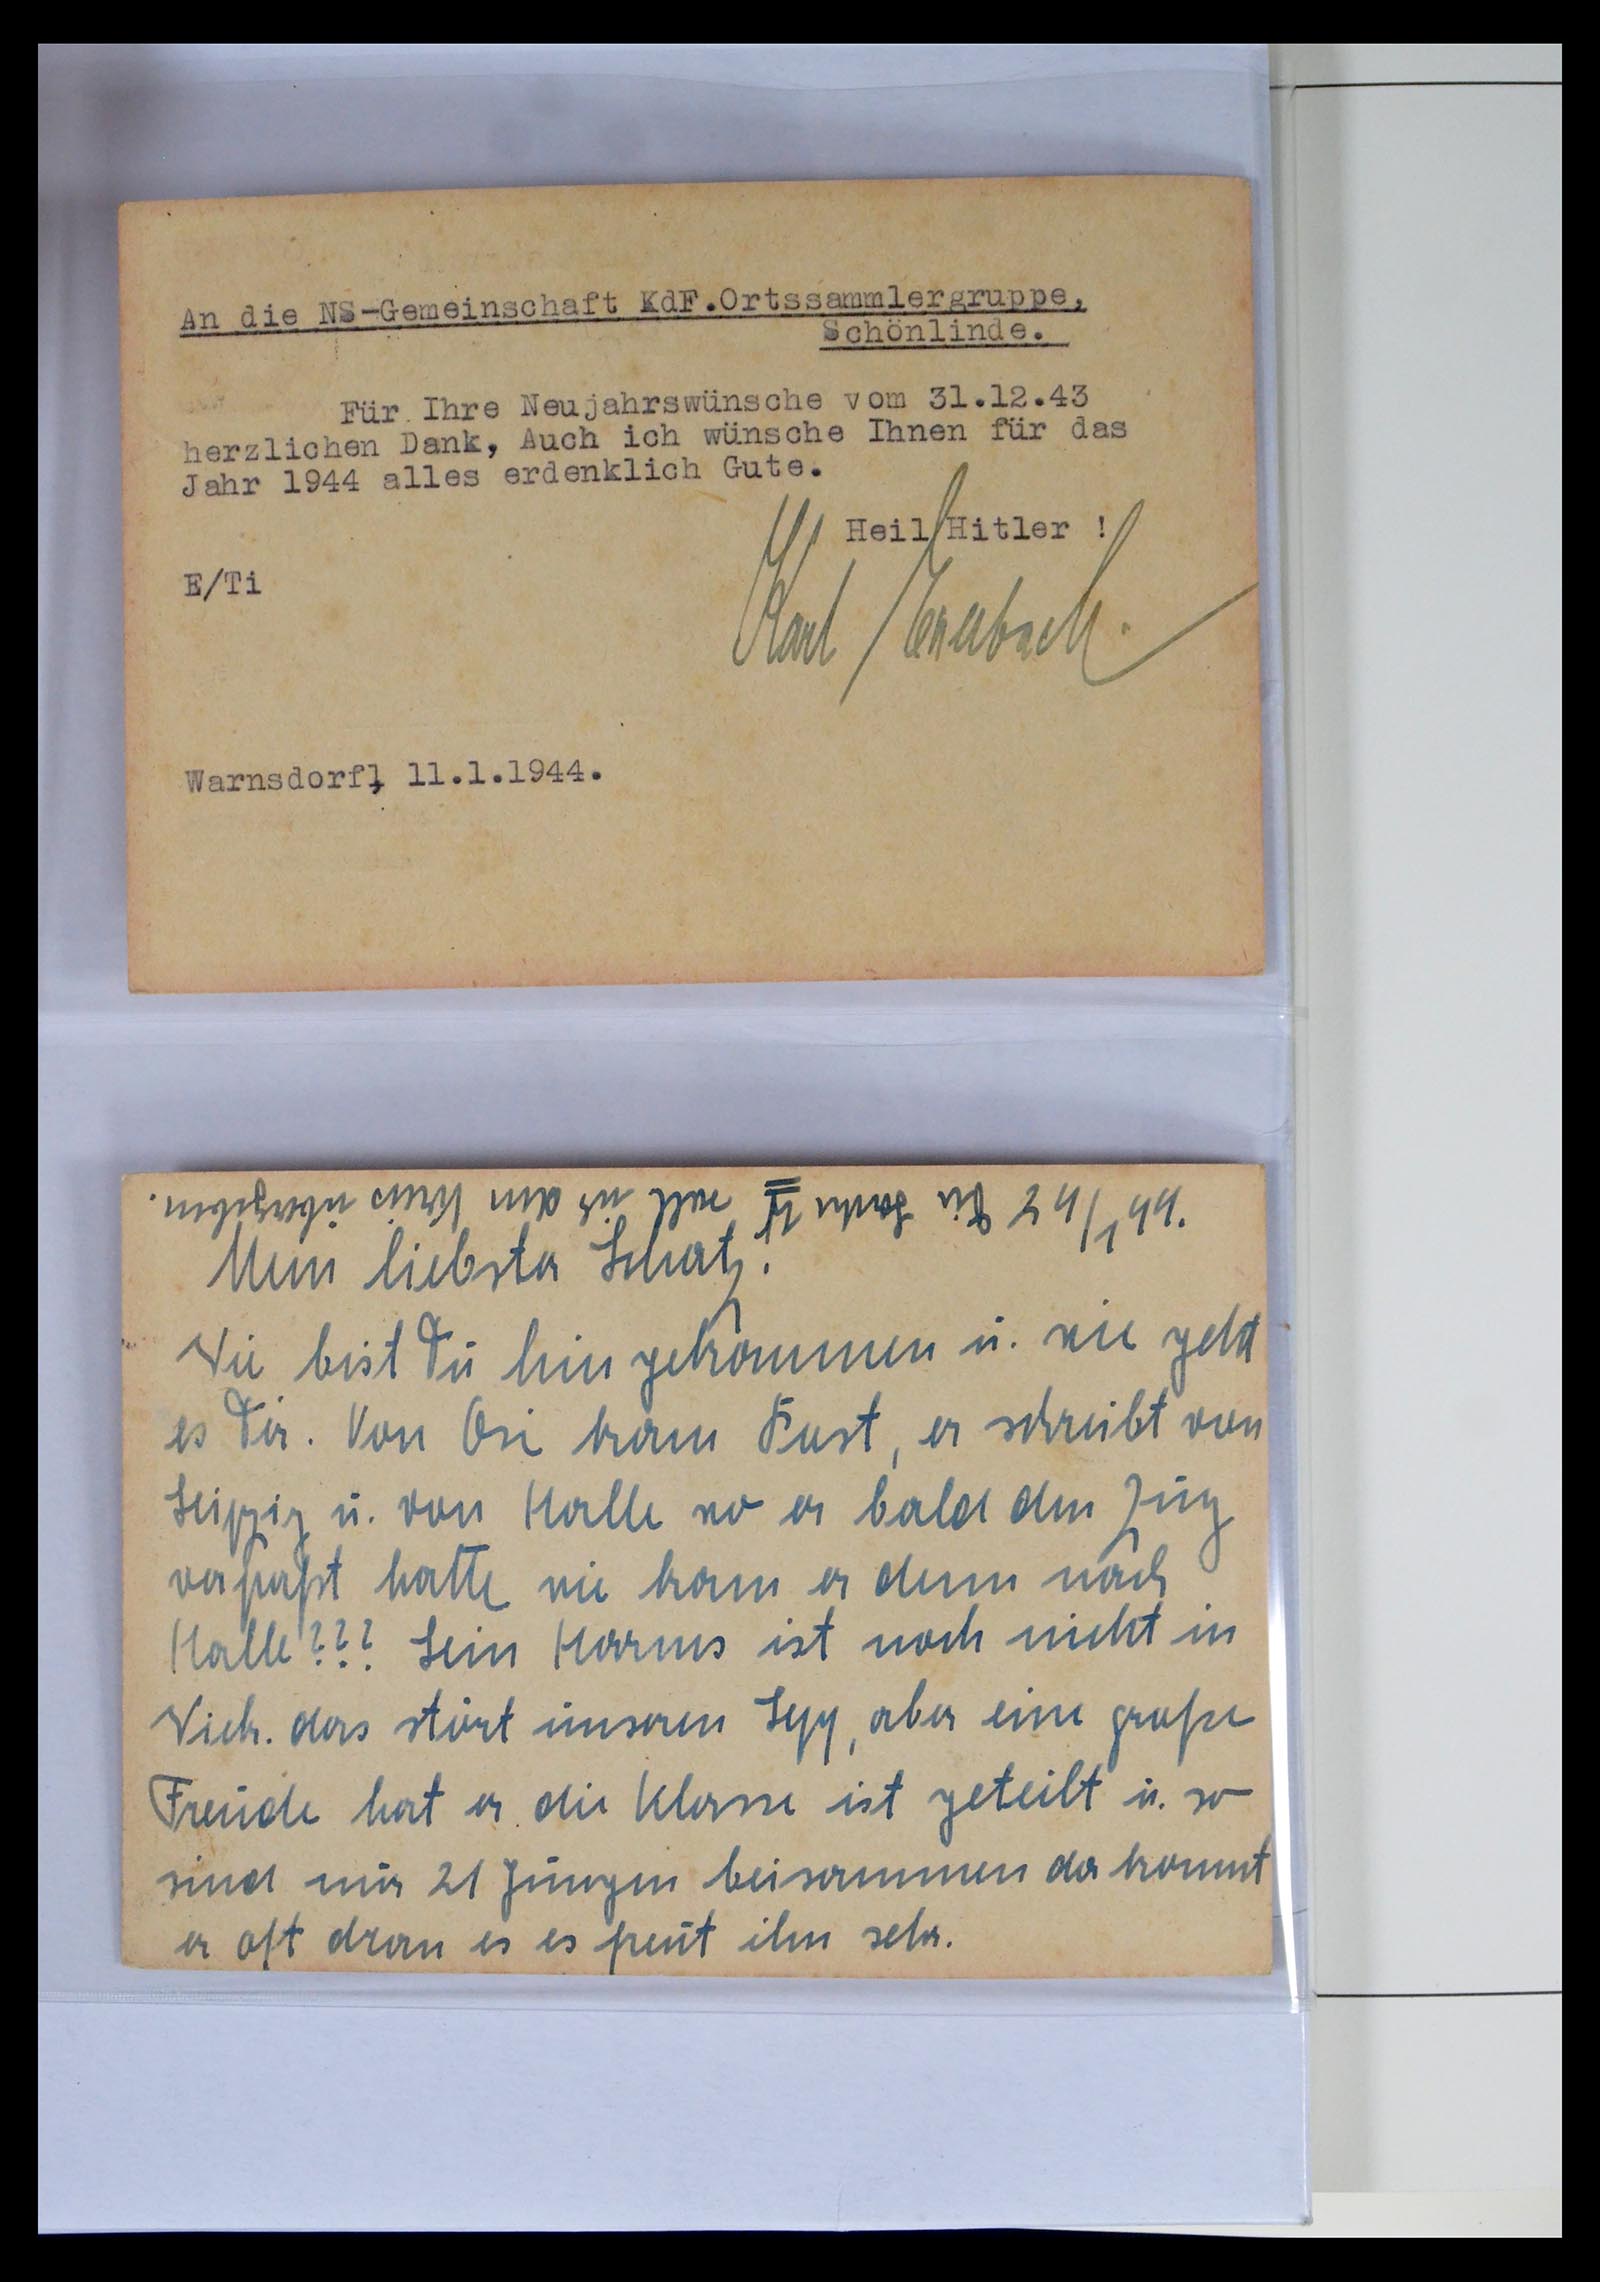 An die NS-Gemeinschaft KdF.Ortssammlergruppe,
Schönlinde.
Für Ihre Neujahrswünsche vom 31.12.43
herzlichen Dank, Auch ich wünsche Ihnen für das
Jahr 1944 alles erdenklich Gute.
Heil Hitler !
E/Ti
Karl
Warnsdorf, 11.1.1944.
24/1 44. Die soll ich dem Kreis übergeben.
Mein liebster Schatz!
Wie bist Du hingekommen u. wie geht
es Dir. Von Osi kam Post, er schreibt von
Leipzig u. von Halle wo er bald den Zug
verpaßt hatte wie kam er denn nach
Halle??? Sein ist noch nicht in
das stört unseren Sepp, aber eine große
Freude hat er die Klasse ist geteilt u. so
sind nur 21 Jungen beisammen da kommt
er oft dran es es freut ihn sehr.